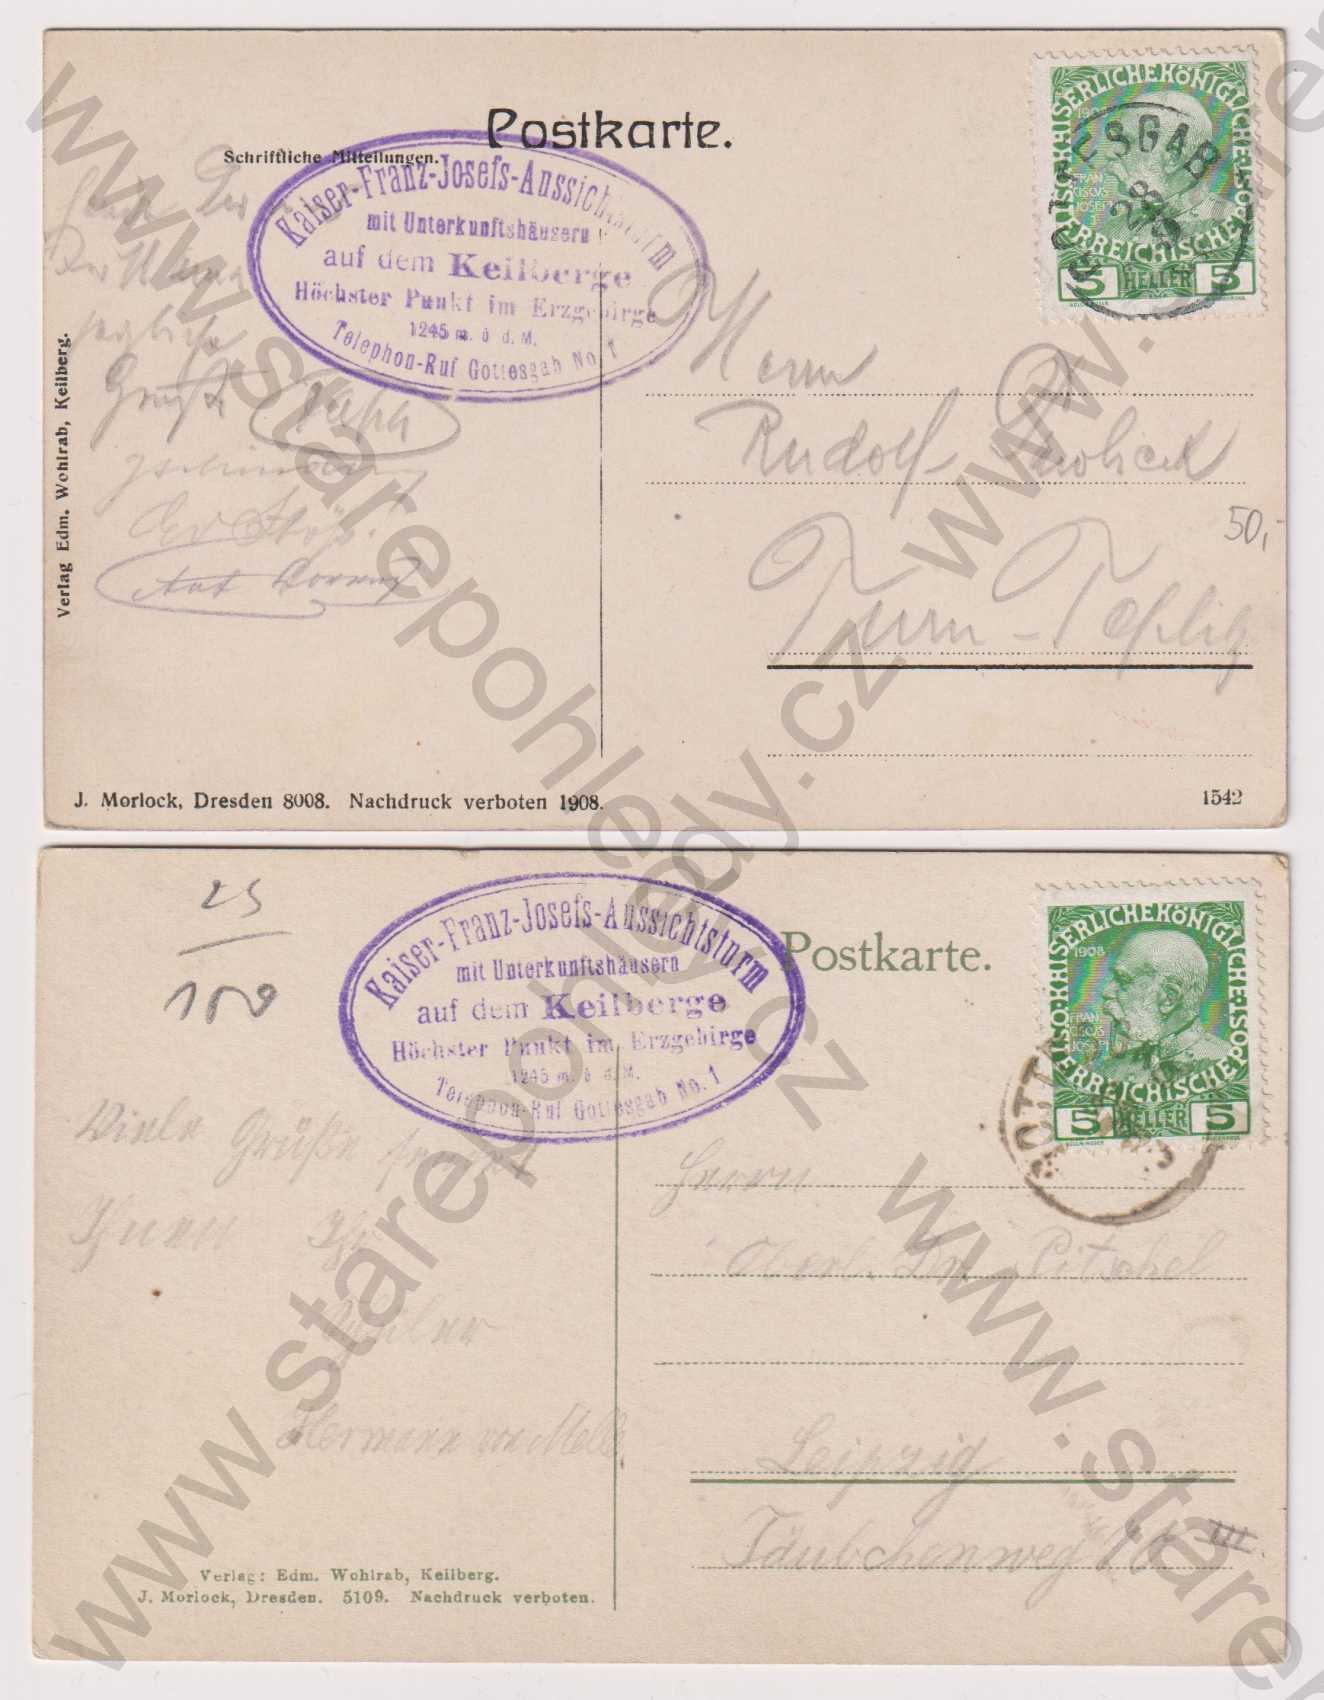 Postkarte.
Schriftliche Mitteilungen.
Kaiser-Franz-Josefs-Aussichtsturm
mit Unterkunftshäusern
auf dem Keilberge
Höchster Punkt im Erzgebirge
1245 m. ü d. M.
Telephon-Ruf Gottesgab No. 1
KAISERLICHE KÖNIGLICHE
ÖSTERREICHISCHE POST
FRAN-
CISCUS
JOSEPH I.
5 HELLER 5
GOTTESGAB
Grüße Papa
Herrn
Rudolf
Turn - Teplitz
50,-
Verlag Edm. Wohlrab, Keilberg.
J. Morlock, Dresden 8008. Nachdruck verboten 1908.
1542
25
150
Postkarte.
Kaiser-Franz-Josefs-Aussichtsturm
mit Unterkunftshäusern
auf dem Keilberge
Höchster Punkt im Erzgebirge
1245 m. ü d. M.
Telephon-Ruf Gottesgab No. 1
KAISERLICHE KÖNIGLICHE
ÖSTERREICHISCHE POST
1908
FRAN-
CISCUS
JOSEPH I.
5 HELLER 5
Viele Grüße sendet
Ihnen Ihr
Schüler
Hermann von Melle
Herrn
Oberl. Dr. Pitschel
Leipzig
Täubchenweg
III
Verlag: Edm. Wohlrab, Keilberg.
J. Morlock, Dresden. 5109. Nachdruck verboten.
www.starepohledy.cz
www.starepohledy.cz